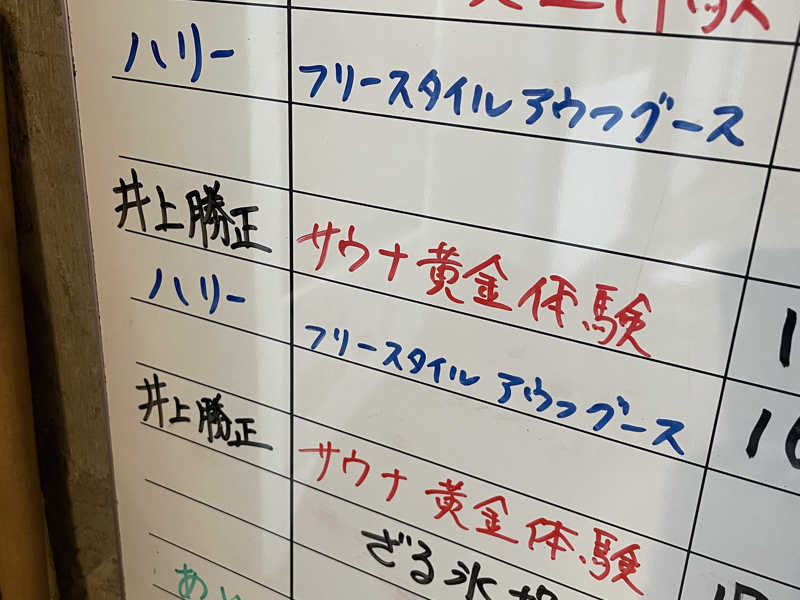 ハリー フリースタイルアウフグース
井上勝正 サウナ黄金体験
ハリー フリースタイル アウフグース
井上勝正 サウナ黄金体験
ざる氷